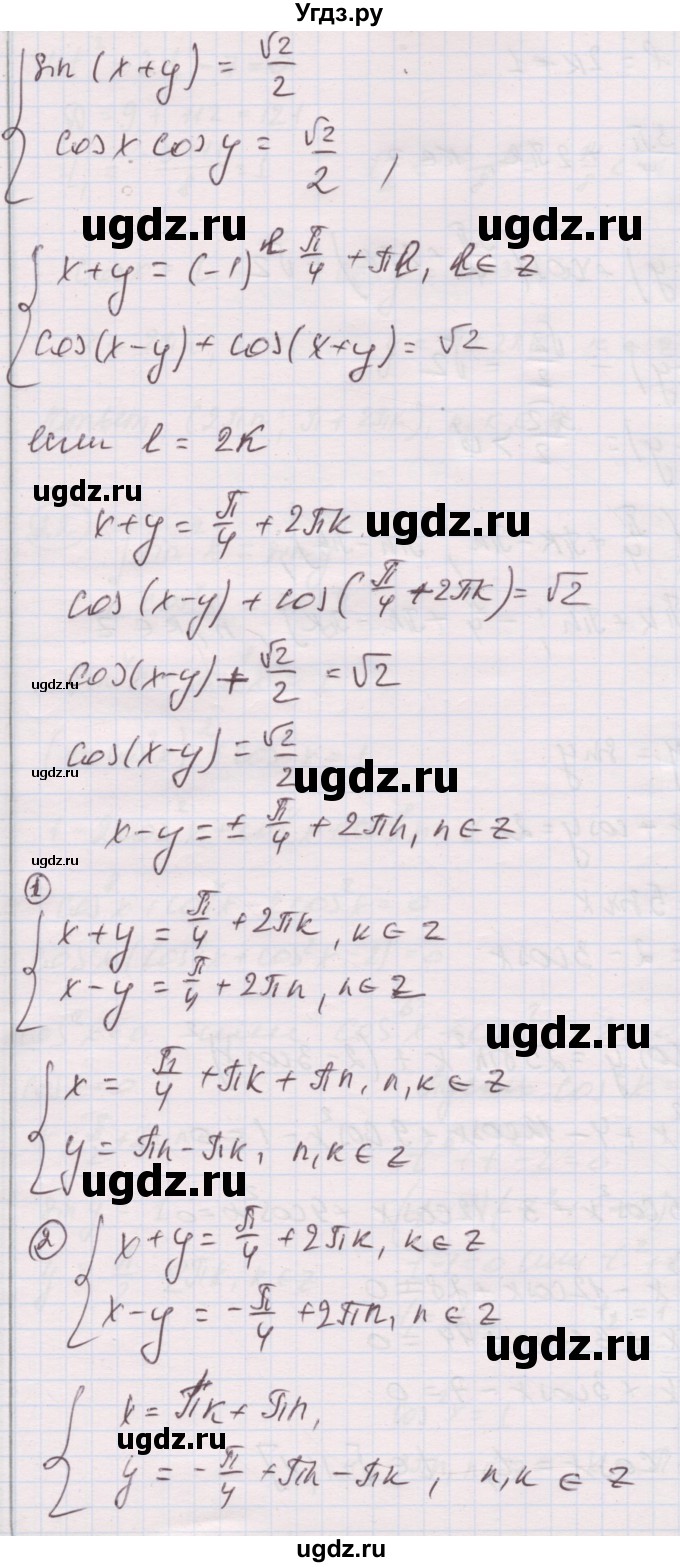 Угдз.ру
sin (x+y) = √2/2
cos x cos y = √2/2 ,
ugdz.ru ugdz.ru
x+y = (-1)^l π/4 + πl, l ∈ Z
cos(x-y) + cos(x+y) = √2
если l = 2k
ugdz.ru
x+y = π/4 + 2πk
cos(x-y) + cos(π/4 + 2πk) = √2
ugdz.ru
cos(x-y) + √2/2 = √2
cos(x-y) = √2/2
ugdz.ru
ugdz.ru
x-y = ± π/4 + 2πn, n ∈ Z
ugdz.ru
1
x+y = π/4 + 2πk, k ∈ Z
x-y = π/4 + 2πn, n ∈ Z
ugdz.ru
x = π/4 + πk + πn, n,k ∈ Z
y = πn - πk, n,k ∈ Z
ugdz.ru
2
x+y = π/4 + 2πk, k ∈ Z
x-y = -π/4 + 2πn, n ∈ Z
ugdz.ru
x = πk + πn,
ugdz.ru
y = -π/4 + πn - πk, n,k ∈ Z
ugdz.ru